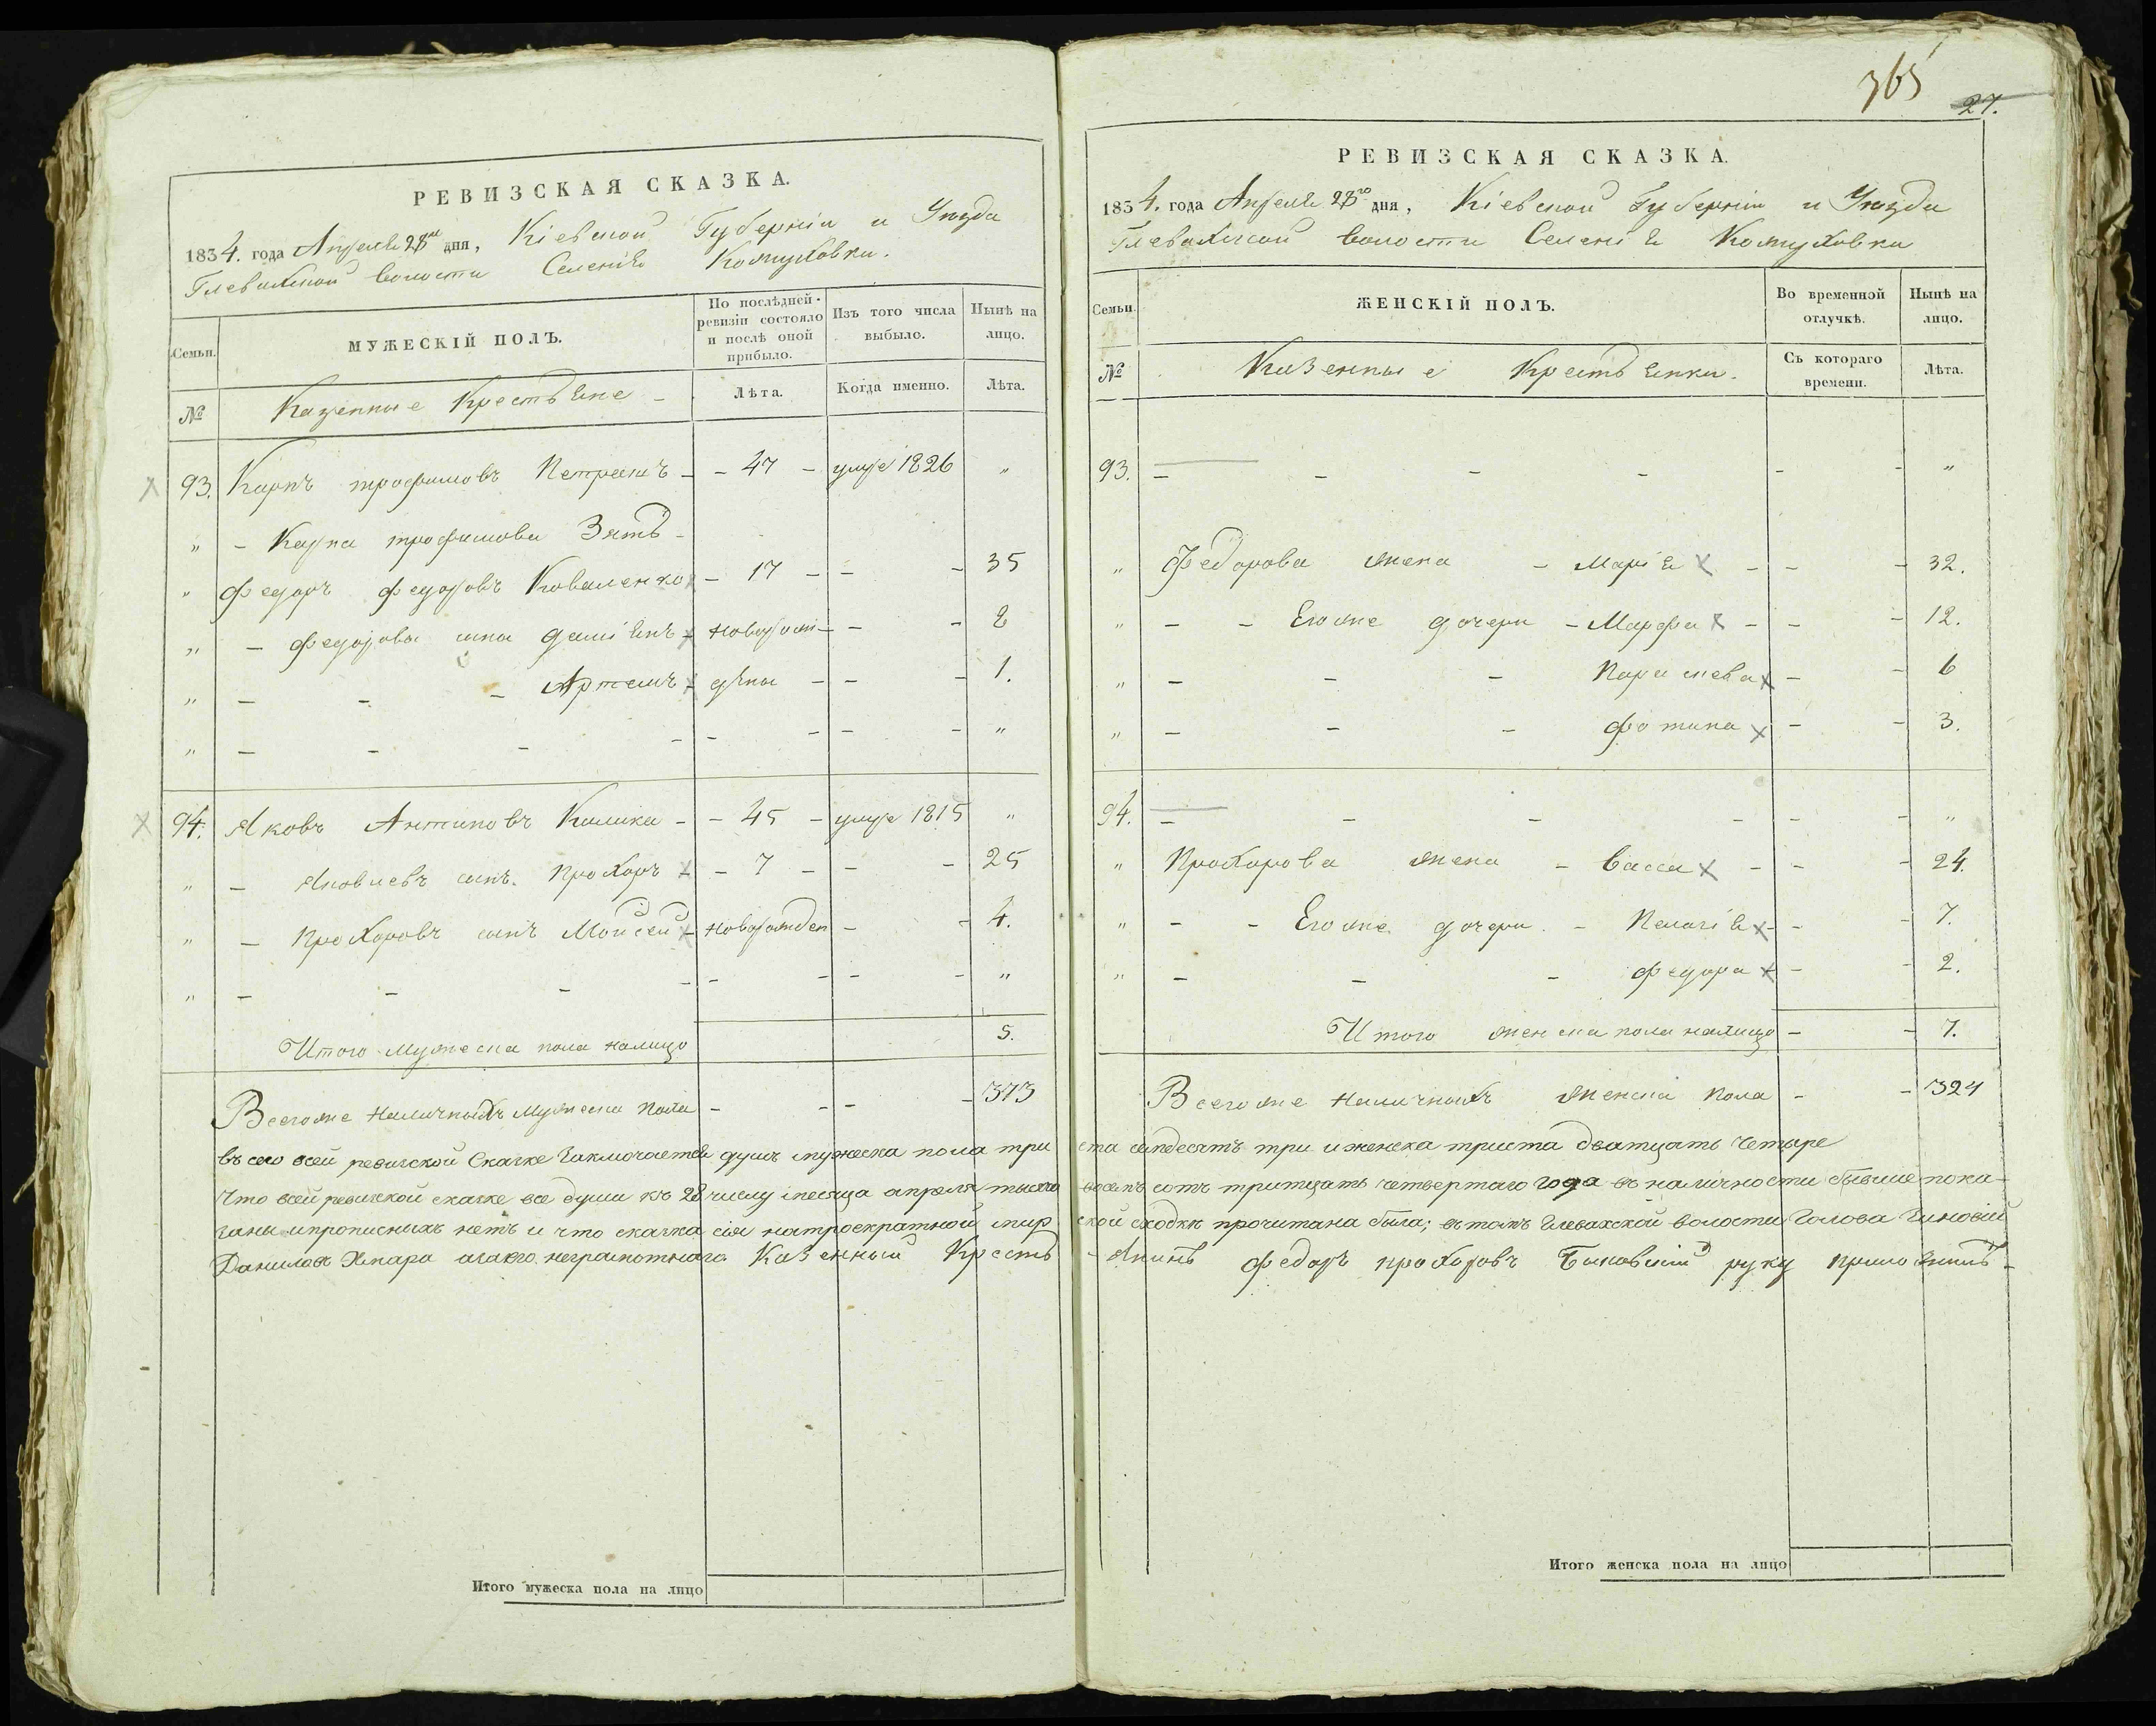 РЕВИЗСКАЯ СКАЗКА.
1834. года Апреля 28го дня, Кіевской Губерніи и Уѣзда
Глевахской волости Селенія Кожуховки.
Семьи. МУЖЕСКІЙ ПОЛЪ. По послѣдней ревизіи состояло и послѣ оной прибыло. Изъ того числа выбыло. Нынѣ на лицо.
№ Казенные Крестьяне - Лѣта. Когда именно. Лѣта.
93. Карпъ трофимовъ Петранъ - - 47 - умре 1826 "
" - Карпа трофимова Зять -
" федоръ федоровъ Коваленко - 17 - - - 35
" - федорова сына Даміянъ - новорож- - - 2
" - - - Артемъ - дѣны - - - 1.
" - - - - - - - - "
94. Яковъ Антиповъ Калика - - 45 - умре 1815 "
" - Яковлевъ сынъ. Прохоръ - 7 - - - 25
" - Прохоровъ сынъ Мойсей - новорожден - - 4.
" - - - - - - - - "
Итого мужеска пола налицо 5.
Всегоже Наличныхъ Мужеска Пола - - - - 373
РЕВИЗСКАЯ СКАЗКА.
365
27.
1834. года Апреля 28го дня, Кіевской Губерніи и Уѣзда
Глевахской волости Селенія Кожуховки
Семьи. ЖЕНСКІЙ ПОЛЪ. Во временной отлучкѣ. Нынѣ на лицо.
№ Казенные Крестьянки. Съ котораго времени. Лѣта.
93. - - - - - - "
" Федорова жена - Марія - - - 32.
" - - Егоже дочери - Марфа - - - 12.
" - - - Параскева - - 6
" - - - фотина - - 3.
94. - - - - - - "
" Прохорова жена - васса - - - 24.
" - - Егоже дочери. - Пелагія - - - 7.
" - - - федора - - 2.
Итого женска пола налицо - - 7.
Всегоже Наличныхъ женска Пола - - 324
въ сей ревизской Сказке Заключается душъ мужеска пола три ста семдесятъ три и женска триста дватцать четыре
Что всей ревизской сказке все души къ 28 числу месяца апреля тысяча восемъ сотъ тритцать четвертаго года въ наличности бывше пока-
заны и прописныхъ нетъ и что сказка сія на троекратной мир ской сходке прочитана была; въ томъ Глевахской волости Голова Зиновій
Данилов Хмара а за его неграмотнаго Казенный Кресть - янинъ федоръ прохоровъ руку приложилъ -
Итого мужеска пола на лицо
Итого женска пола на лицо